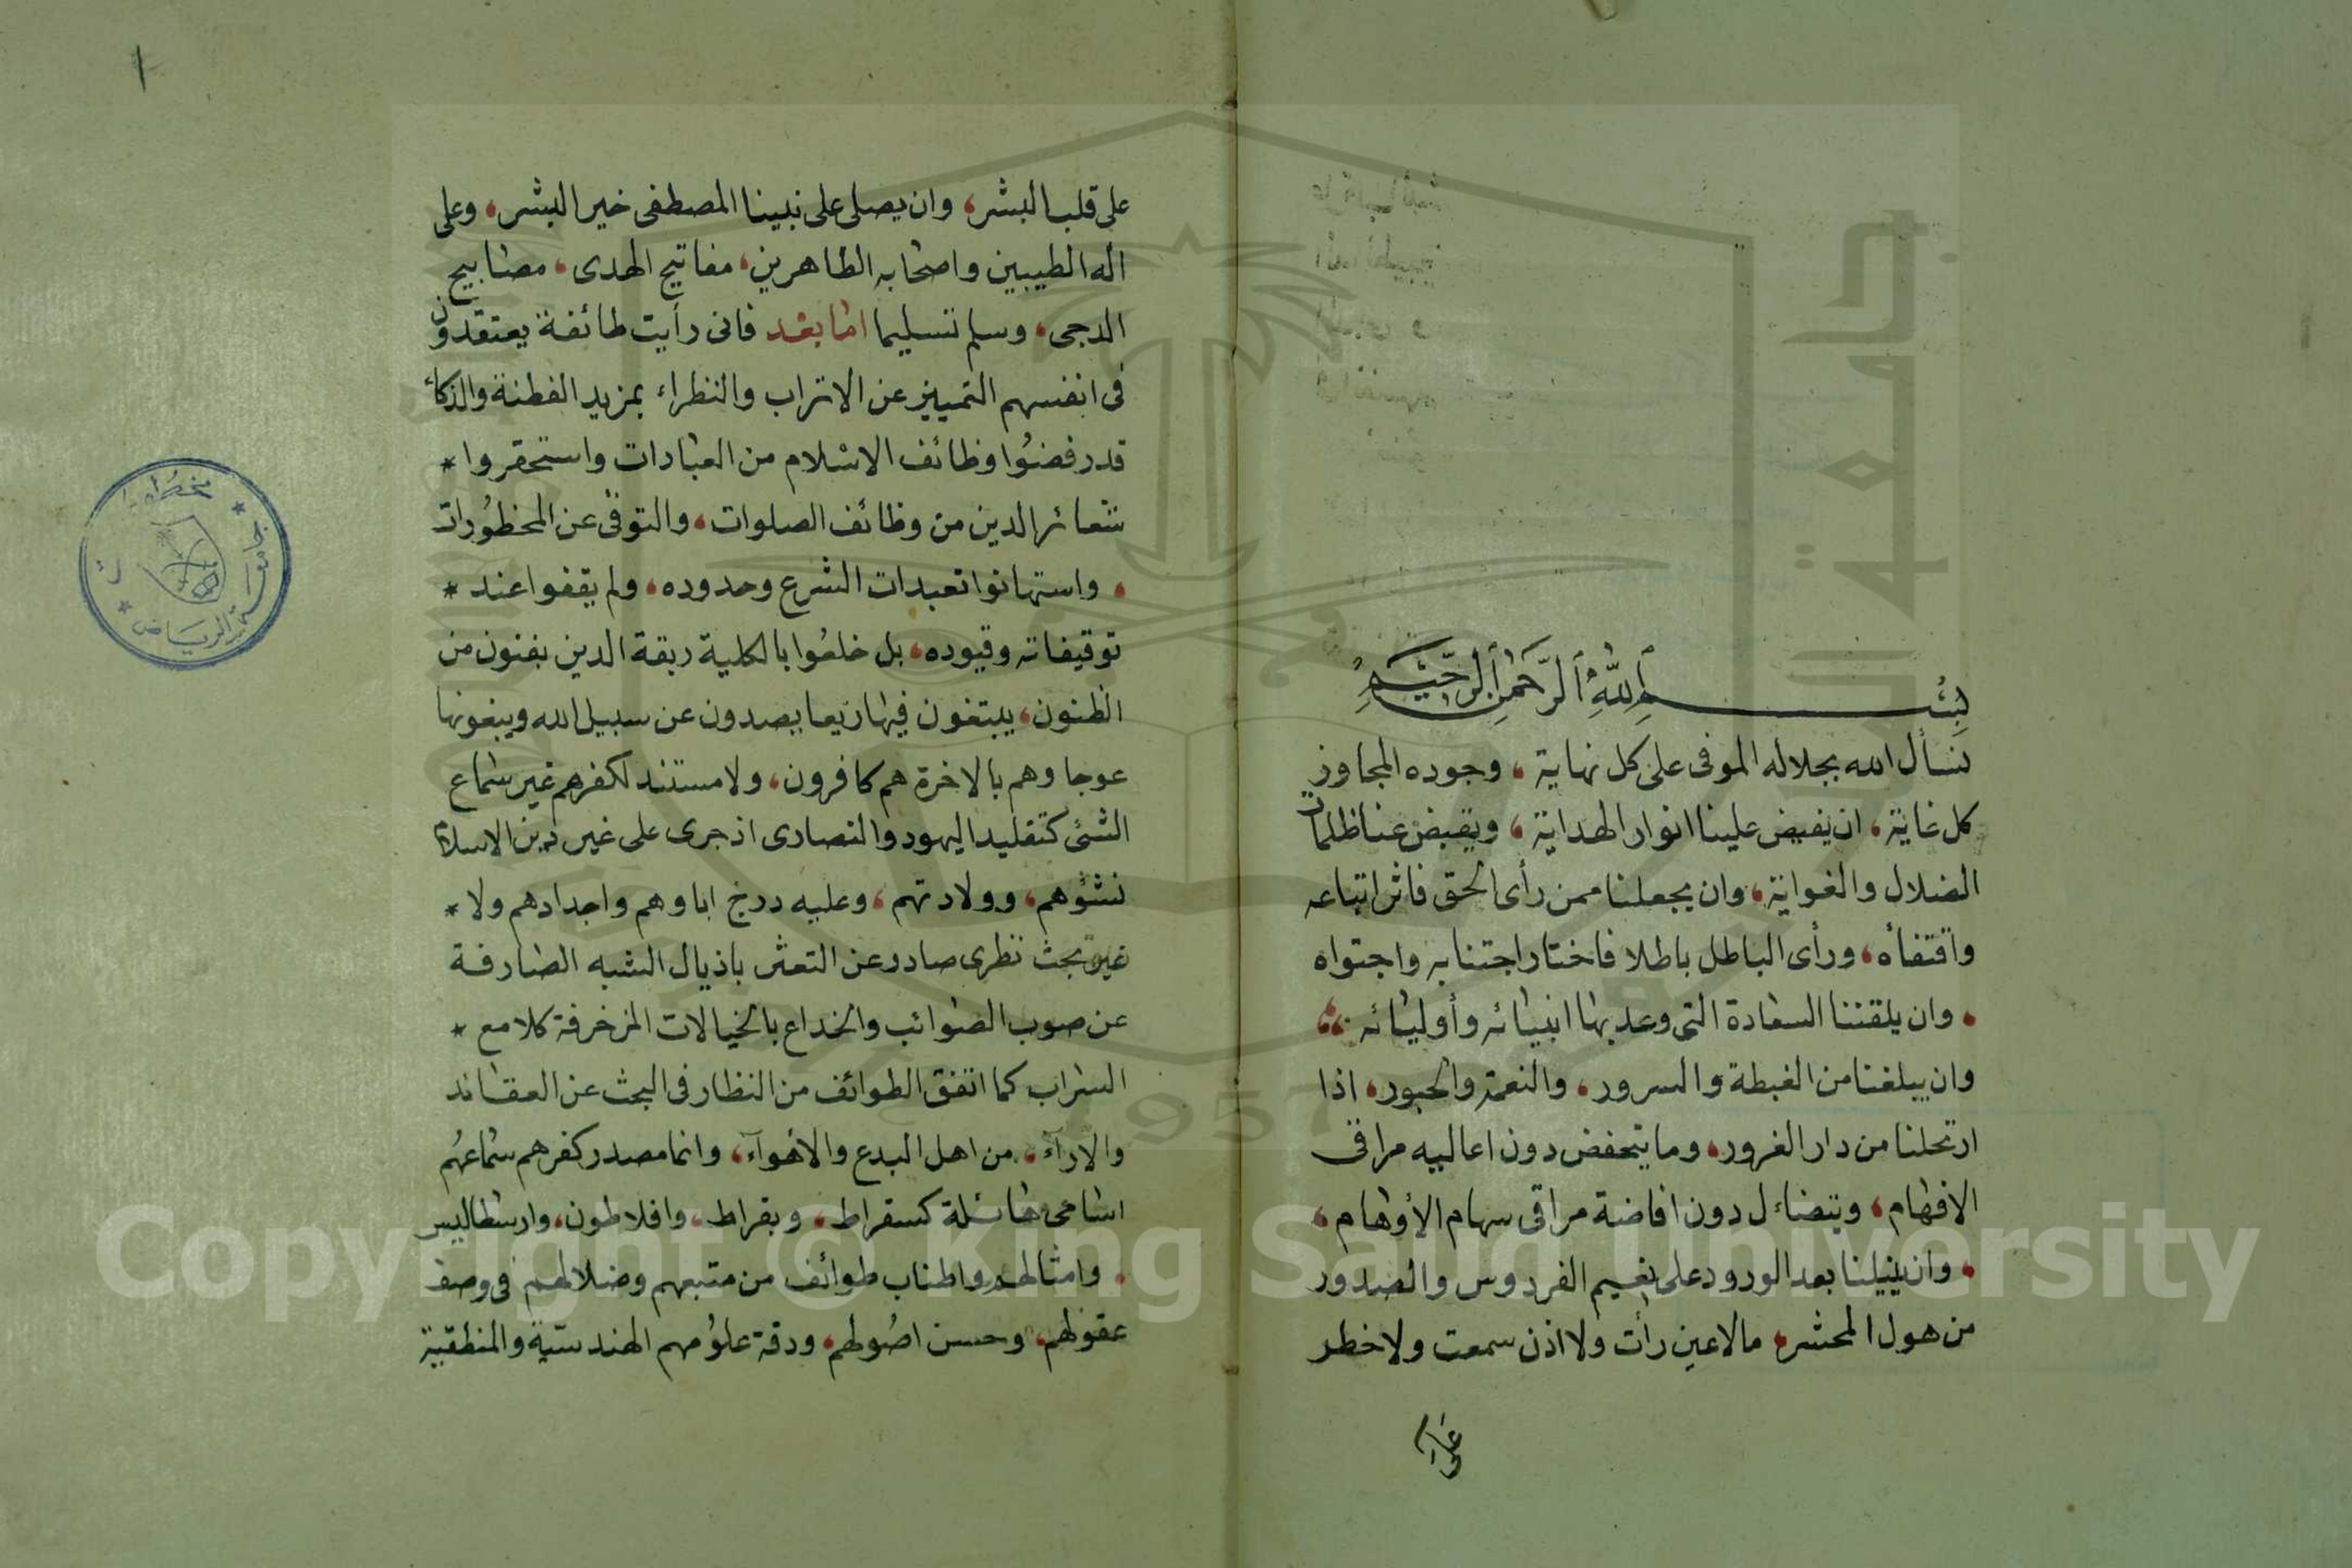 بسم الله الرحمن الرحيم
نسأل الله بجلاله الموفى على كل نهاية، وجوده المجاوز
كل غاية، ان يفيض علينا انوار الهداية، ويقبض عنا ظلمات
الضلال والغواية، وان يجعلنا ممن رأى الحق فاثر اتباعه
واقتفأه، ورأى الباطل باطلا فاختار اجتنابه واجتواه
، وان يلقننا السعادة التى وعد بها انبيائه وأوليائه ،،
وان يبلغنا من الغبطة والسرور، والنعمة والحبور، اذا
ارتحلنا من دار الغرور، وما يتحفض دون اعاليه مراقى
الافهام، ويتضاءل دون افاضة مراقى سهام الأوهام،
، وان ينيلنا بعد الورود على نعيم الفردوس والصدور
من هول المحشر، مالا عين رأت ولا اذن سمعت ولا خطر
على
١
على قلب البشر، وان يصلى على نبينا المصطفى خير البشر، وعلى
اله الطيبين واصحابه الطاهرين، مفاتيح الهدى، مصابيح
الدجى، وسلم تسليما اما بعد فانى رأيت طائفة يعتقدون
فى انفسهم التمييز عن الاتراب والنظراء بمزيد الفطنة والذكاء
قد رفضوا وظائف الاسلام من العبادات واستحقروا *
شعائر الدين من وظائف الصلوات، والتوقى عن المحظورات
، واستهانوا تعبدات الشرع وحدوده، ولم يقفوا عند *
توقيفاته وقيوده، بل خلعوا بالكلية ربقة الدين بفنون من
الظنون، يبتغون فيها زيعا يصدون عن سبيل الله ويبغونها
عوجا وهم بالاخرة هم كافرون، ولا مستند لكفرهم غير سماع
الشئ كتقليد اليهود والنصارى اذ جرى على غير دين الاسلام
نشؤهم، وولادتهم، وعليه درج اباوهم واجدادهم ولا *
غير بحث نظرى صادر عن التعثر باذيال الشبه الصارفة
عن صوب الصوائب والخداع بالخيالات المزخرفة كلامع *
السراب كما اتفق الطوائف من النظار فى البحث عن العقائد
والارآء، من اهل البدع والأهوآء، وانما مصدر كفرهم سماعهم
اسامى هائلة كسقراط، وبقراط، وافلاطون، وارسطاليس
، وامثالهم واطناب طوائف من متبعهم وضلالهم فى وصف
عقولهم، وحسن اصولهم، ودقة علومهم الهندسية والمنطقية
جامعة الرياض
Copyright © King Saud University
1957